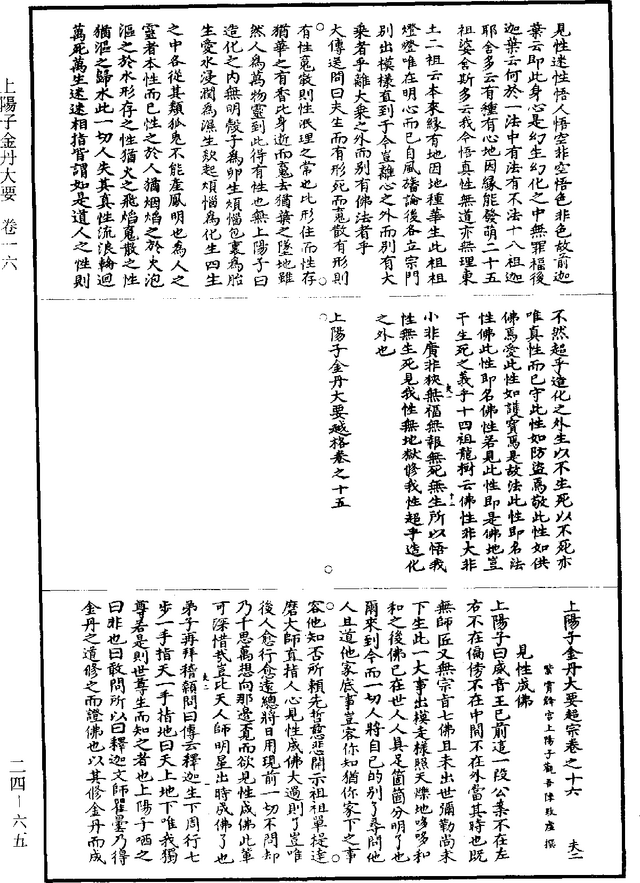 上陽子金丹大要 卷一六
二四—六五
見性迷性悟人悟空非空悟色非色故前迦
葉云即此身心是幻生幻化之中無罪福後
迦葉云何於一法中有法有不法十八祖迦
耶舍多云有種有心地因緣能發萌二十五
祖婆舍斯多云我今悟真性無道亦無理東
土二祖云本來緣有地因地種華生此祖祖
燈燈唯在明心而已自風旛論後各立宗門
別出模樣直到于今豈離心之外而別有大
乘者乎離大乘之外而別有佛法者乎
大傳送問曰夫生而有形死而䰟散有形則
有性䰟散則性泯理之常也比形住而性存
猶華之有香比身逝而䰟去猶葉之墜地雖
然人為萬物靈到此得有性也無上陽子曰
造化之內無明㱿子為卵生煩惱包裹為胎
生愛水浸潤為濕生欻起煩惱為化生四生
之中各從其類狐兔不能產鳳明也為人之
靈者本性而已性之於人猶烟焰之於火泡
漚之於水形存之性猶火之飛焰䰟散之性
猶漚之歸水此一切人失其真性流浪輪迴
萬死萬生迷迷相指皆謂如是道人之性則
不然超乎造化之外生以不生死以不死亦
唯真性而已守此性如防盜焉敬此性如供
佛焉愛此性如護寶焉是故法此性即名法
性佛此性即名佛性若見此性即是佛地豈
干生死之義乎十四祖龍樹云佛性非大非
小非廣非狹無福無報無死無生所以悟我
性無生死見我性無地獄修我性超乎造化
之外也
上陽子金丹大要越格卷之十五
上陽子金丹大要超宗卷之十六 夫二
紫霄絳宮上陽子觀吾陳致虛 撰
見性成佛
上陽子曰威音王已前這一段公案不在左
右不在偏傍不在中間不在外當其時也既
無師匠又無宗旨七佛且未出世彌勒尚未
下生此一大事出模走樣照天爍地哆哆和
和之後佛已在世人人具足箇箇分明了也
爾來到今而一切人將自己的別了尋問他
人且道他家底事豈容你知猶你家下之事
容他知否所賴先哲慈悲開示祖祖單提達
磨大師直指人心見性成佛大過則了豈唯
後人愈行愈遠總將日用現前一切不問却
乃千思萬想向那邊覓而欲見性成佛此輩
可深惜哉豈比天人師明星出時成佛了也
弟子再拜稽顙問曰傳云釋迦生下周行七
步一手指天一手指地曰天上地下唯我獨
尊若是則世尊生而知之者也上陽子哂之
曰非也曰敢問所以曰釋迦文師瞿曇乃得
金丹之道修之而證佛也以其修金丹而成